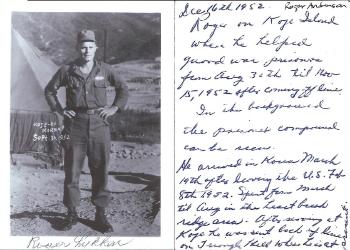 KOJE-DO
KOREA
Sept 30, 1952
Dec 6th 1952.
Roger
Roger on Koje Island
where he helped
guard war prisoners
from Aug 30th til Nov
15, 1952 after coming off line.
In the background
the prisoner compound
can be seen.
He arrived in Korea March
19th after leaving the U.S. Feb
8th 1952. Spent from March
til Aug in the heart break
ridge area. After serving at
Koje he was sent back of line
on Triangle Hill where he is at